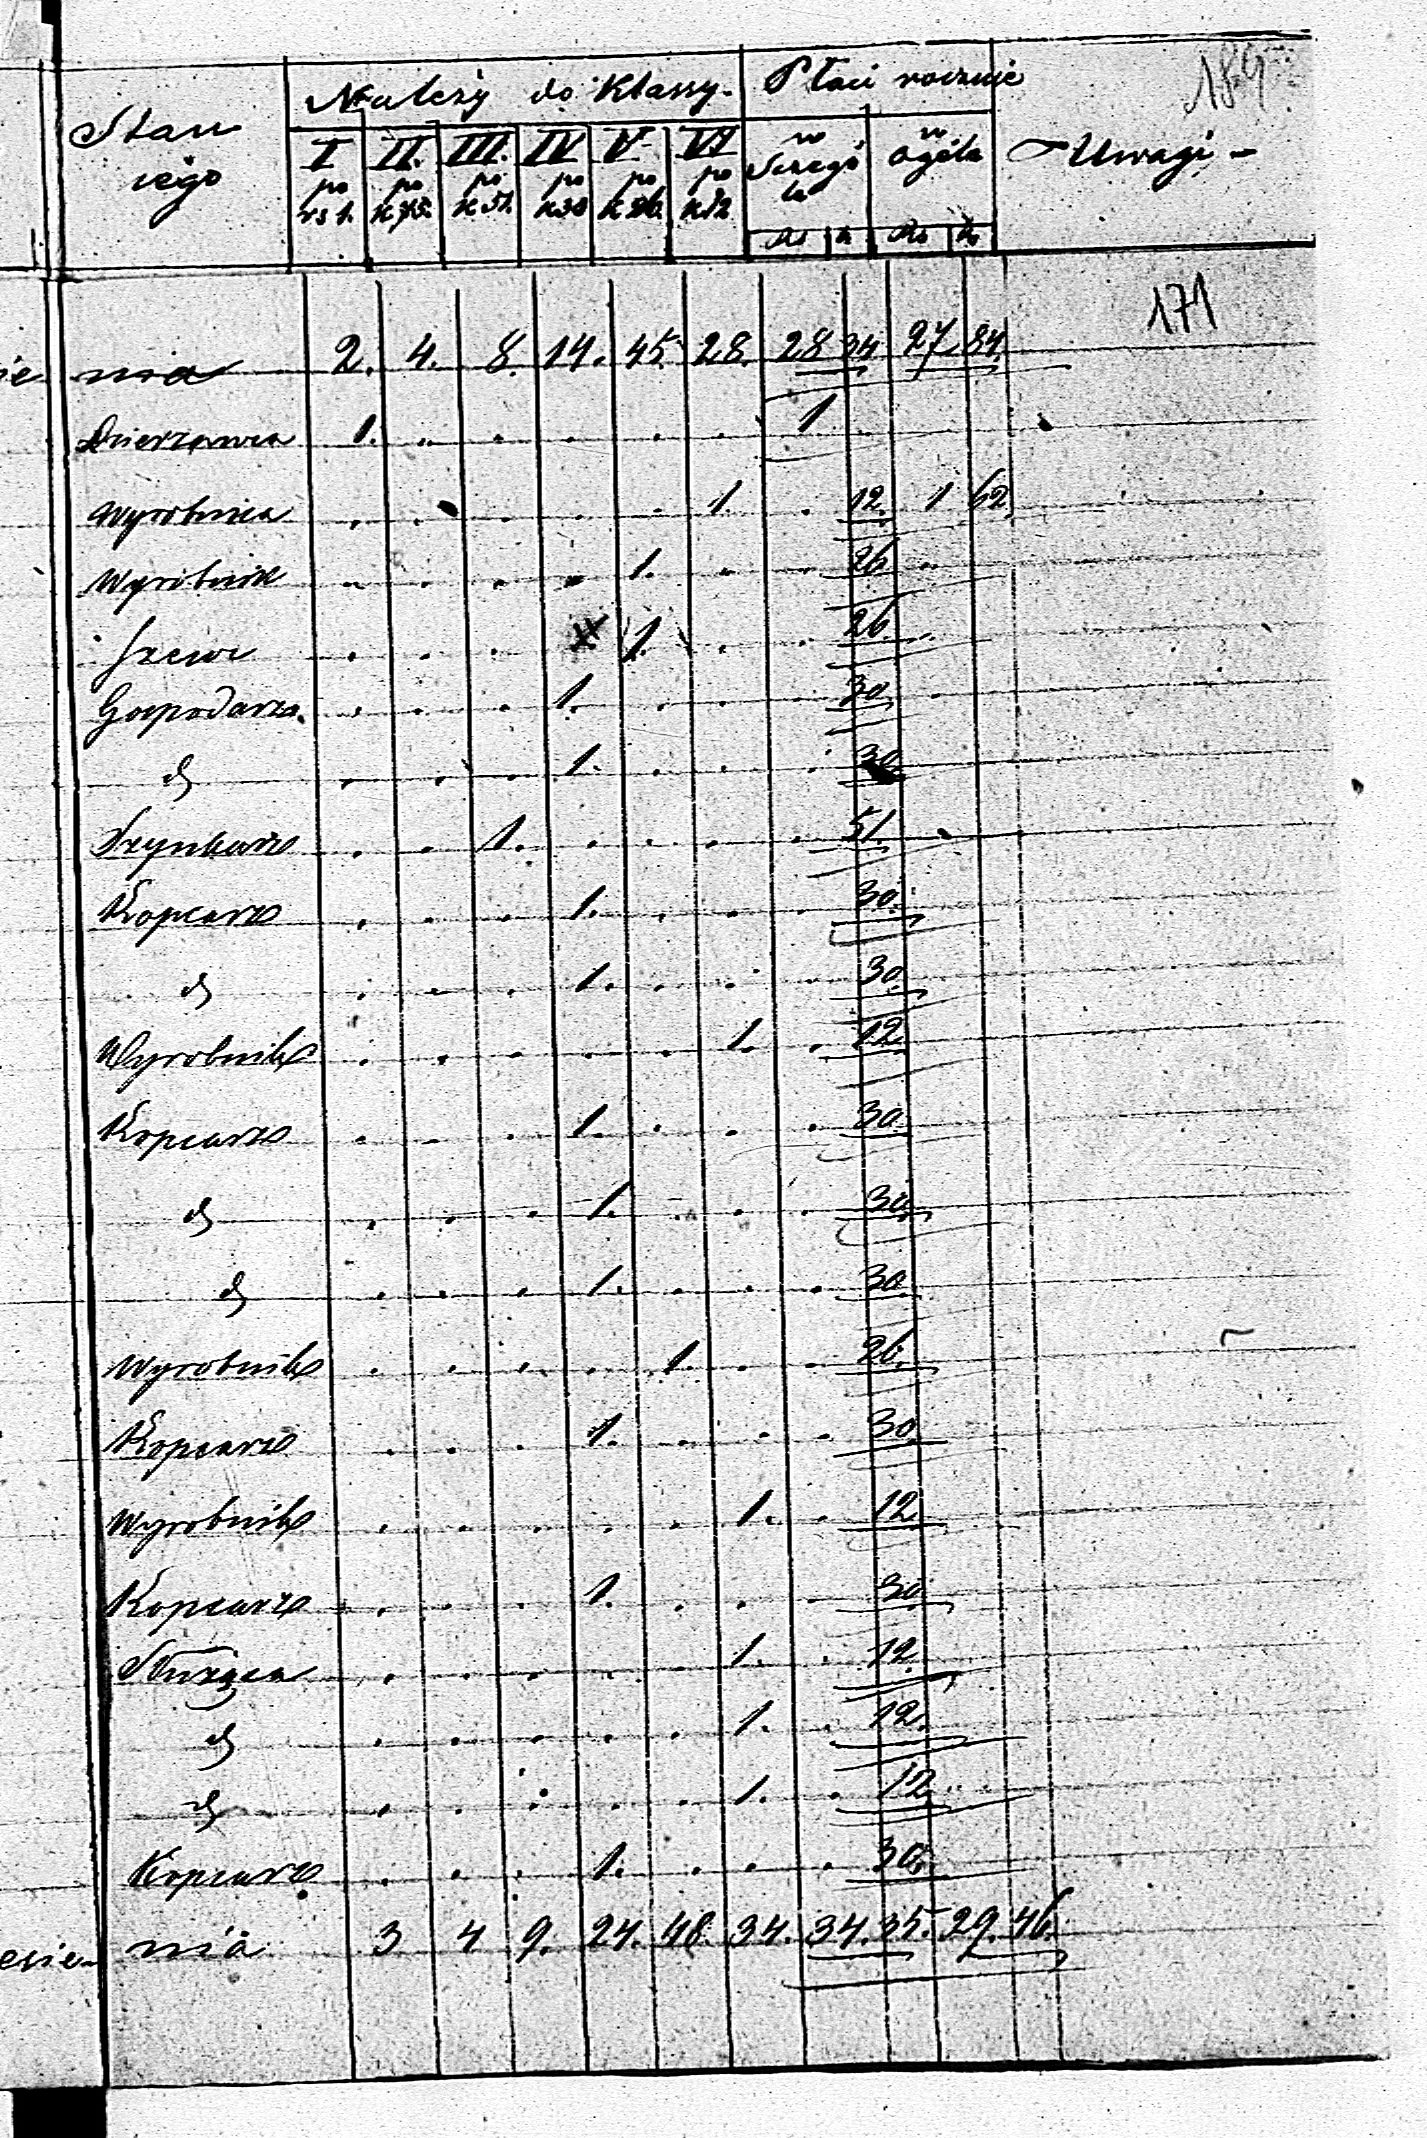 Stan
jego
Należy do Klassy.
Płaci rocznie
189
I po rs 1.
II. po k 75.
III. po k 51.
IV po k 30
V po k 26.
VI po k 12
w Szczegó le
w ogóle
Rs k Rs k
Uwagi
171
nia 2. 4. 8. 14. 45. 28. 28 34 27. 84.
Dzierzawca 1. . . . . . 1. .
Wyrobnica . . . . . 1 . 12. 1 62.
Wyrobnik . . . . 1. . . 26.
Szewc . . . 1. . . 26.
Gospodarz. . . . 1. . . . 30.
d . . . 1. . . . 30.
Szynkarz . . 1. . . . . 51.
Kopcarz . . . 1. . . . 30.
d . . . 1. . . . 30.
Wyrobnik . . . . . 1. . 12.
Kopcarz . . . 1. . . . 30.
d . . . 1. . . . 30.
d . . . 1. . . . 30.
Wyrobnik . . . . 1. . . 26.
Kopcarz . . . 1. . . . 30.
Wyrobnik . . . . . 1. . 12.
Kopcarz . . . 1. . . . 30.
Służąca . . . . . 1. . 12.
d . . . . . 1. . 12.
d . . . . . 1. . 12.
Kopcarz . . . 1. . . . 30.
nia 3 4 9. 24. 48. 34. 34. 35. 29. 46.